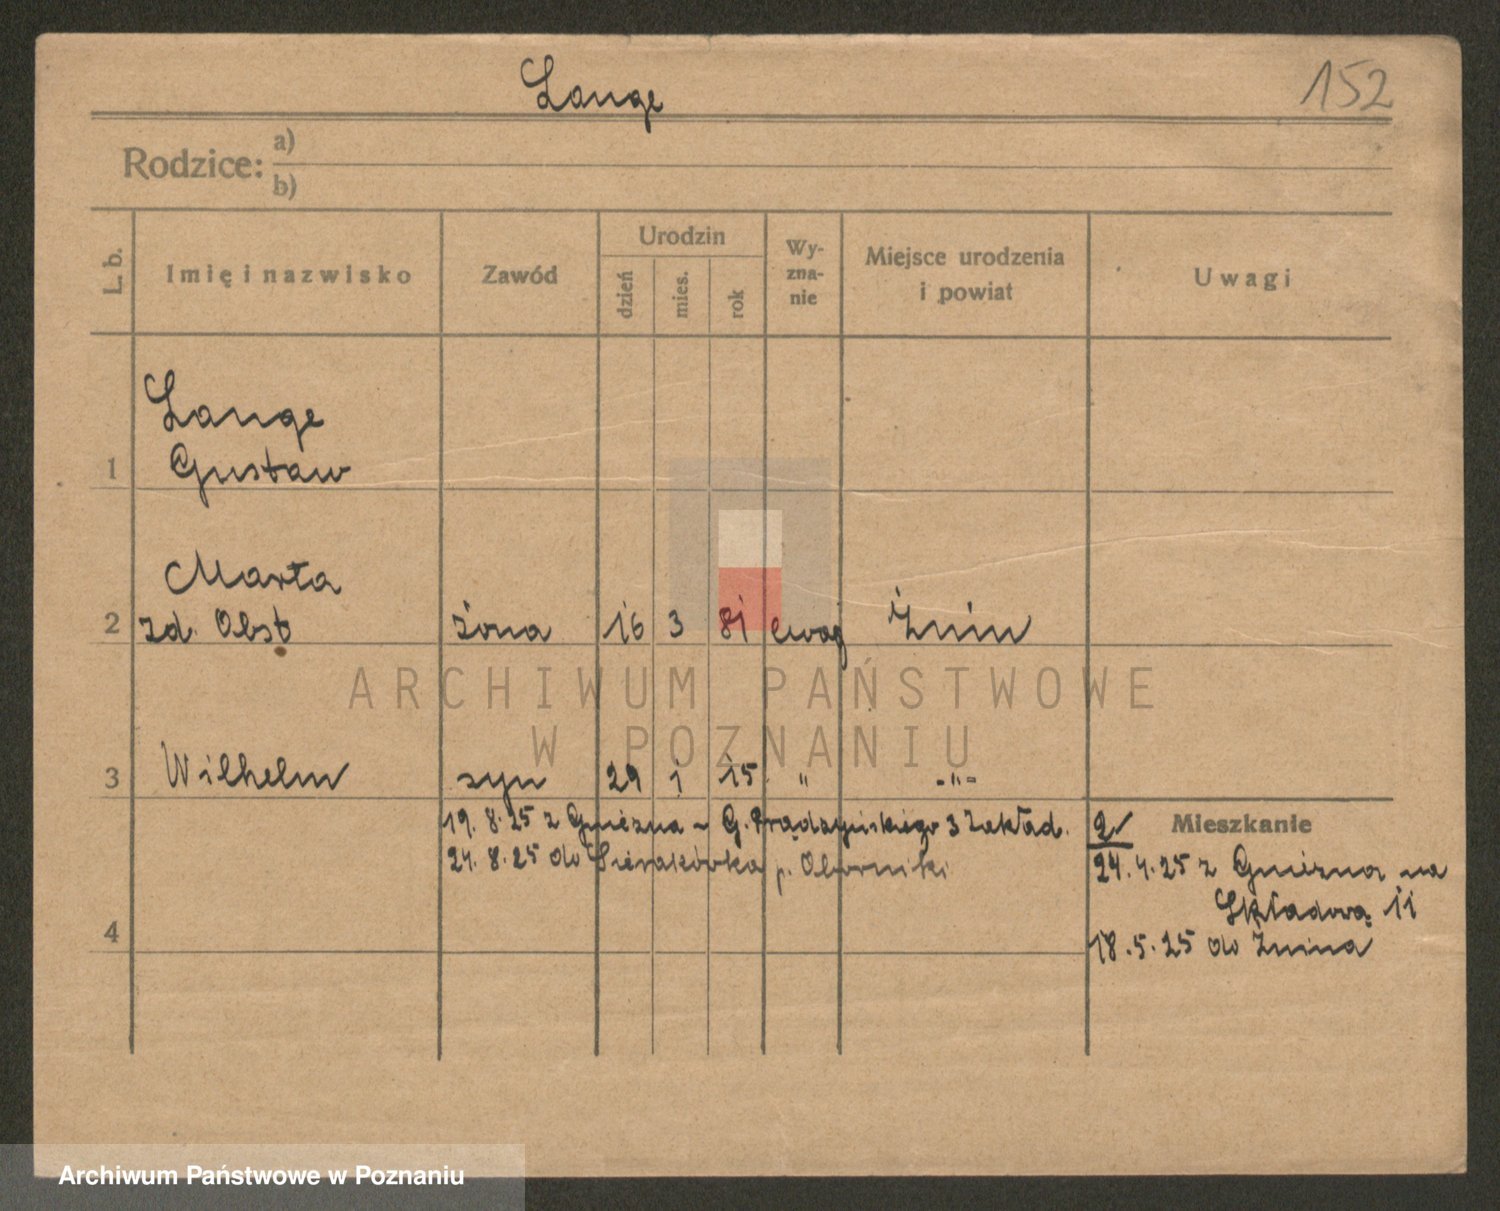 Lange
152
Rodzice: a)
b)
L. b.
Imię i nazwisko
Zawód
Urodzin
dzień
mies.
rok
Wy-
zna-
nie
Miejsce urodzenia
i powiat
Uwagi
Lange
1 Gustaw
Marta
2 zd. Obst żona 16 3 81 ewag Żnin
ARCHIWUM PAŃSTWOWE
W POZNANIU
3 Wilhelm syn 29 1 15 " -"-
19. 8. 25 z Gniezna - G. Prądzyńskiego 3 Zakład.
24. 8. 25 do Sierakówka p. Oborniki
2/ Mieszkanie
24. 4. 25 z Gniezna na
Składową 11
18. 5. 25 do Żnina
4
Archiwum Państwowe w Poznaniu